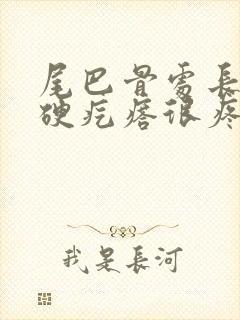 尾巴骨需長
硬疙瘩很疼
我是長河